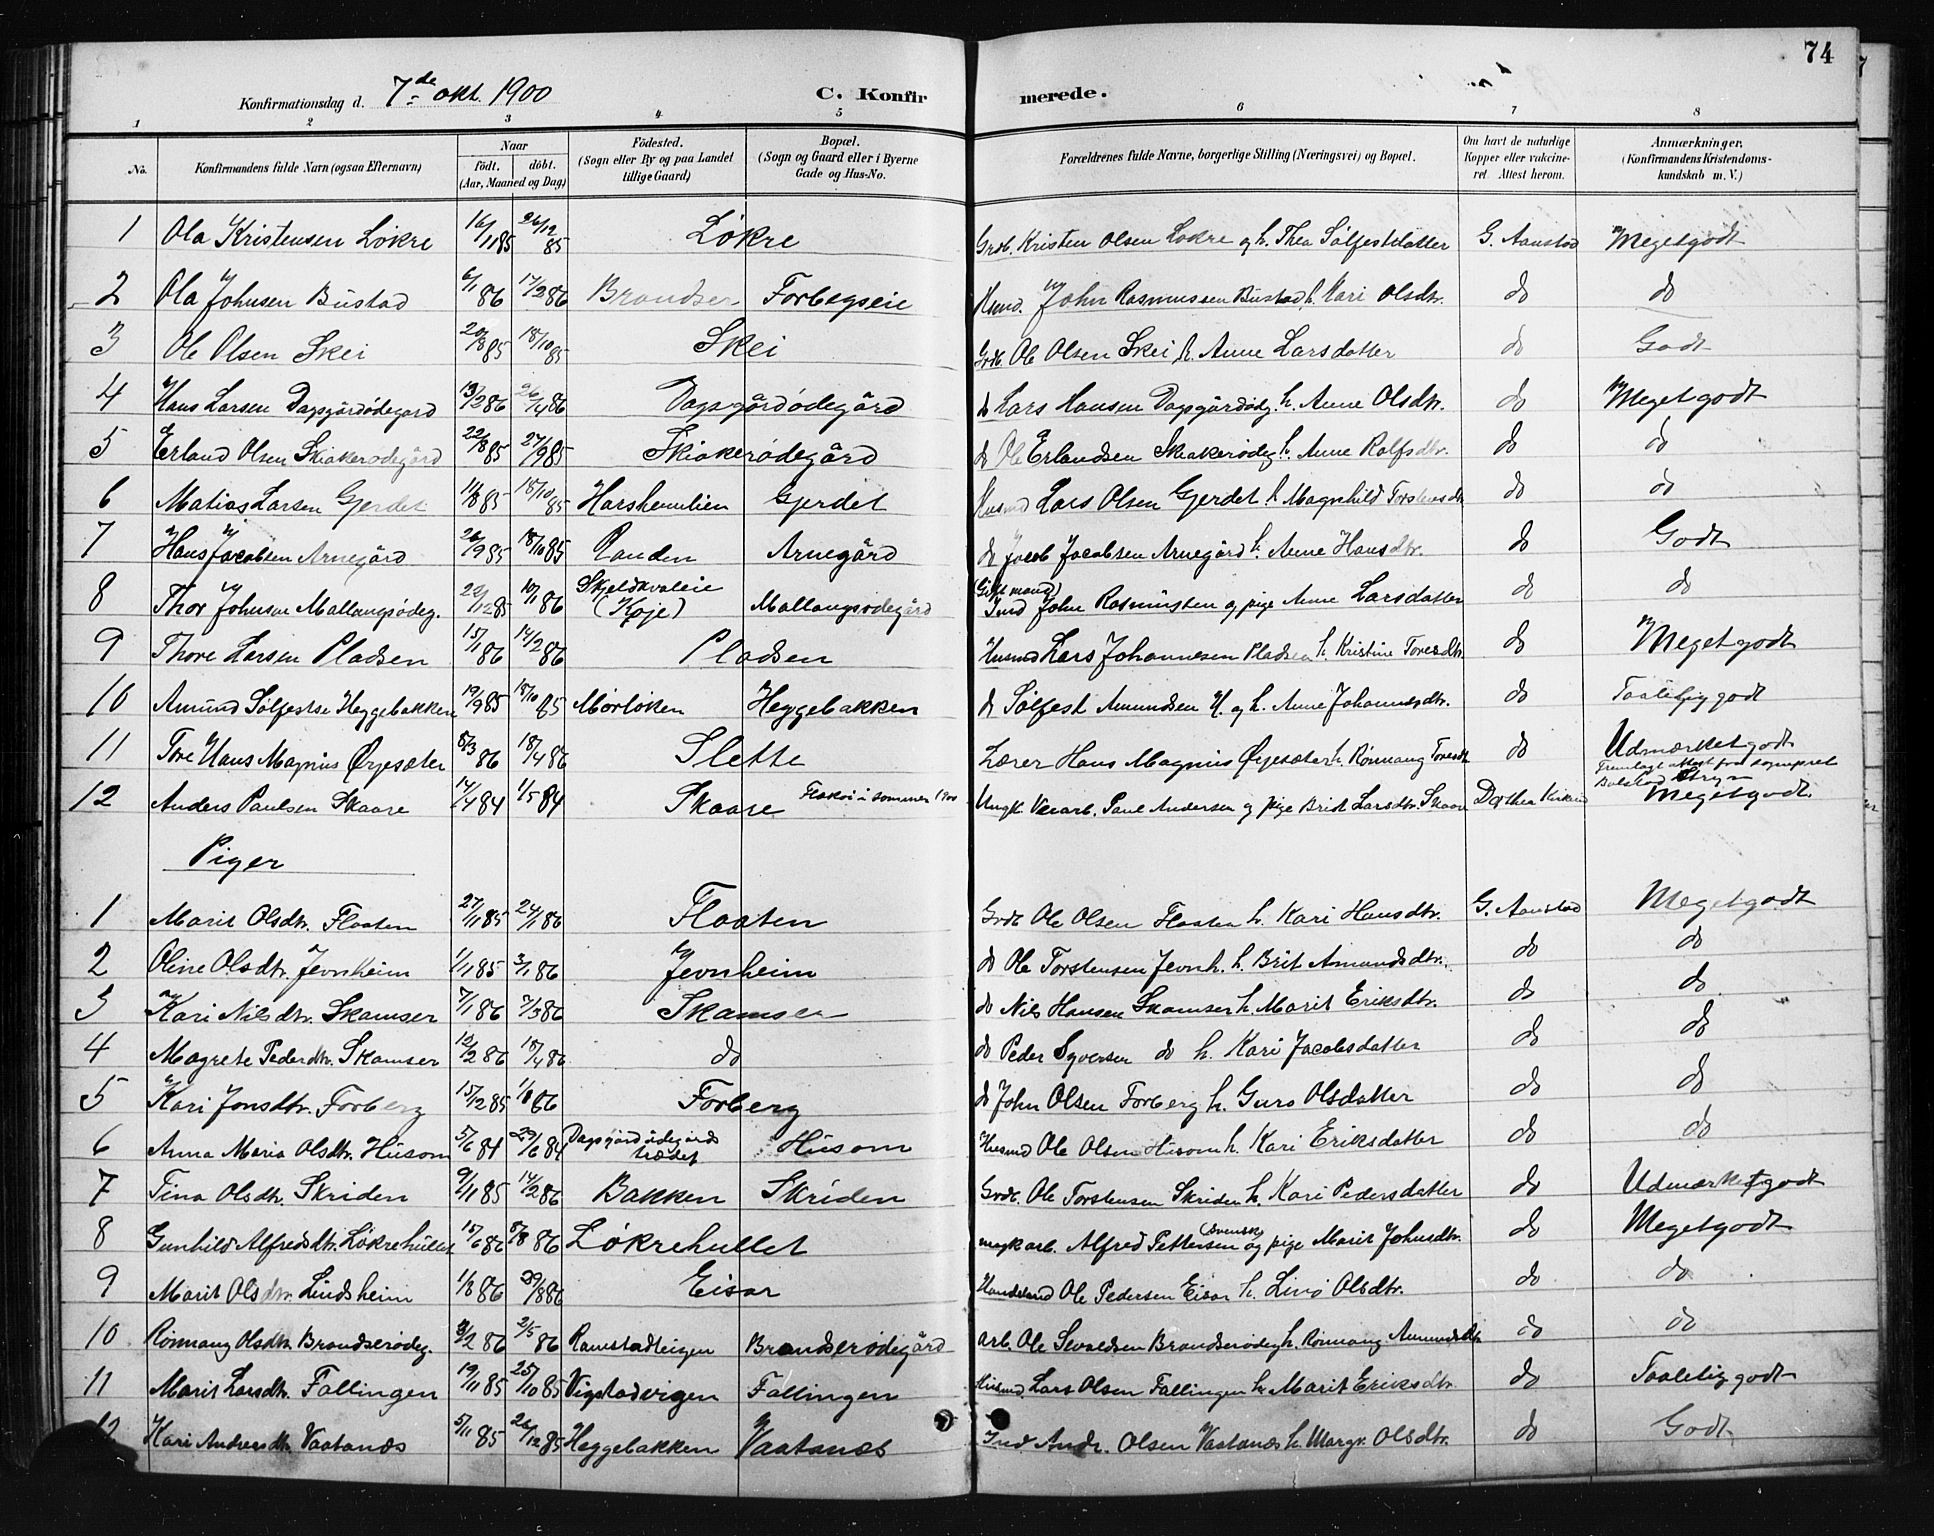 74
Konfirmationsdag d. 7de okt. 1900 C. Konfirmerede.
1 2 3 4 5 6 7 8
No. Konfirmandens fulde Navn (ogsaa Efternavn) Naar födt. döbt. (Aar, Maaned og Dag) Födested. (Sogn eller By og paa Landet tillige Gaard) Bopæl. (Sogn og Gaard eller i Byerne Gade og Hus-No. Forældrenes fulde Navne, borgerlige Stilling (Næringsvei) og Bopæl. Om havt de naturlige Kopper eller vaccineret. Attest herom. Anmærkninger. (Konfirmandens Kristendomskundskab m. V.)
1 Ola Kristensen Løkre 16/11 85 26/12 85 Løkre Grdb. Kristen Olsen Løkre og h. Thea Sølfestdatter G. Aanstad Megetgodt
2 Ola Johnsen Bustad 6/1 86 17/2 86 Brandser Forbergseie Husmd. John Rasmussen Bustad h. Kari Olsdtr. do do
3 Ole Olsen Skei 20/8 85 18/10 85 Skei Grdb. Ole Olsen Skei h. Anne Larsdatter do Godt
4 Hans Larsen Dagsgårdødegard 13/2 86 26/4 86 Dagsgårdødegård d Lars Hansen Dagsgårdødg. h. Anne Olsdtr. do Megetgodt
5 Erland Olsen Skiakerødegård 22/8 85 27/9 85 Skiakerødegård d Ole Erlandsen Skiakerødeg h. Anne Rolfsdtr. do do
6 Matias Larsen Gjerdet 11/8 85 18/10 85 Harsheimlien Gjerdet Husmd Lars Olsen Gjerdet h Magnhild Torstensdtr do do
7 Hans Jacobsen Arnegård 26/9 85 18/10 85 Randen Arnegård d Jacob Jacobsen Arnegård h. Anne Hansdtr. do Godt
8 Thor Johnsen Mallangsødeg. 22/12 85 10/1 86 Skjeldkvaleie (Køje) Mallangsødegård (Gift mand) Ind John Rasmussen og pige Anne Larsdatter do do
9 Thore Larsen Pladsen 15/1 86 14/2 86 Pladsen Husmd Lars Johannesen Pladsen h. Kristine Toresdtr. do Megetgodt
10 Amund Sølfestse Heggebakken 19/9 85 18/10 85 Mørløken Heggebakken d Sølfest Amundsen H. og h. Anne Johannesdtr. do Taaleliggodt
11 Tore Hans Magnus Ørjesæter 8/3 86 18/4 86 Slette Lærer Hans Magnus Ørjesæter h. Rønnaug Toresdt do Udmærketgodt
12 Anders Paulsen Skaare 14/4 84 1/5 84 Skaare sommer 1900 Ungk. Veiarb. Paul Andersen og pige Brit Larsdtr. Skaare Dorthea Fremlagt attest fra sognepræst Stryn Megetgodt.
Piger
1 Marit Olsdtr. Flaaten 27/11 85 24/1 86 Flaaten Grdb Ole Olsen Flaaten h. Kari Hansdtr. G. Aanstad Megetgodt
2 Oline Olsdtr. Jevnheim 1/11 85 3/1 86 Jevnheim d Ole Torstensen Jevnh. h. Brit Amundsdtr. do do
3 Kari Nilsdtr. Skamser 7/1 86 7/3 86 Skamser d Nils Hansen Skamser h. Marit Eriksdtr. do do
4 Magrete Pedersdtr. Skamser 12/2 86 18/4 86 do do Peder Syversen do h. Kari Jacobsdatter do do
5 Kari Jonsdtr. Forberg 15/12 85 1/ 86 Forberg d John Olsen Forberg h. Guro Olsdatter do do
6 Anna Maria Olsdtr. Husom 5/6 84 29/6 84 Dagsgårdødegårdstrædet Husom Husmd Ole Olsen Husom h. Kari Eriksdatter do do
7 Tina Olsdtr. Skriden 9/11 85 14/2 86 Bakken Skriden Grdb. Ole Torstensen Skriden h. Kari Pedersdatter do Udmærketgodt
8 Gunhild Alfredsdtr. Løkrehullet 15/6 86 8/8 86 Løkrehullet ungk arb. Alfred Pettersen (svensk) og pige Marit Johnsdtr. do Megetgodt
9 Marit Olsdtr. Lindsheim 1/8 86 29/8 86 Eisar Handelsmd Ole Pedersen Eisar h. Lina Olsdtr. do do
10 Rønnaug Olsdtr. Brandserødeg. 2/2 86 2/5 86 Ramstadteigen Brandserødegård arb. Ole Sevaldsen Brandserødeg h. Rønnaug Amundsdtr do do
11 Marit Larsdtr. Fallingen 19/11 85 25/10 85 Vigstadvigen Fallingen Husmd Lars Olsen Fallingen h. Marit Eriksdtr. do Taaleliggodt
12 Kari Andersdtr Vaatanes 5/11 85 26/12 85 Heggebakken Vaatanes Ind Andr. Olsen Vaatanes h. Margr. Olsdtr. do Godt